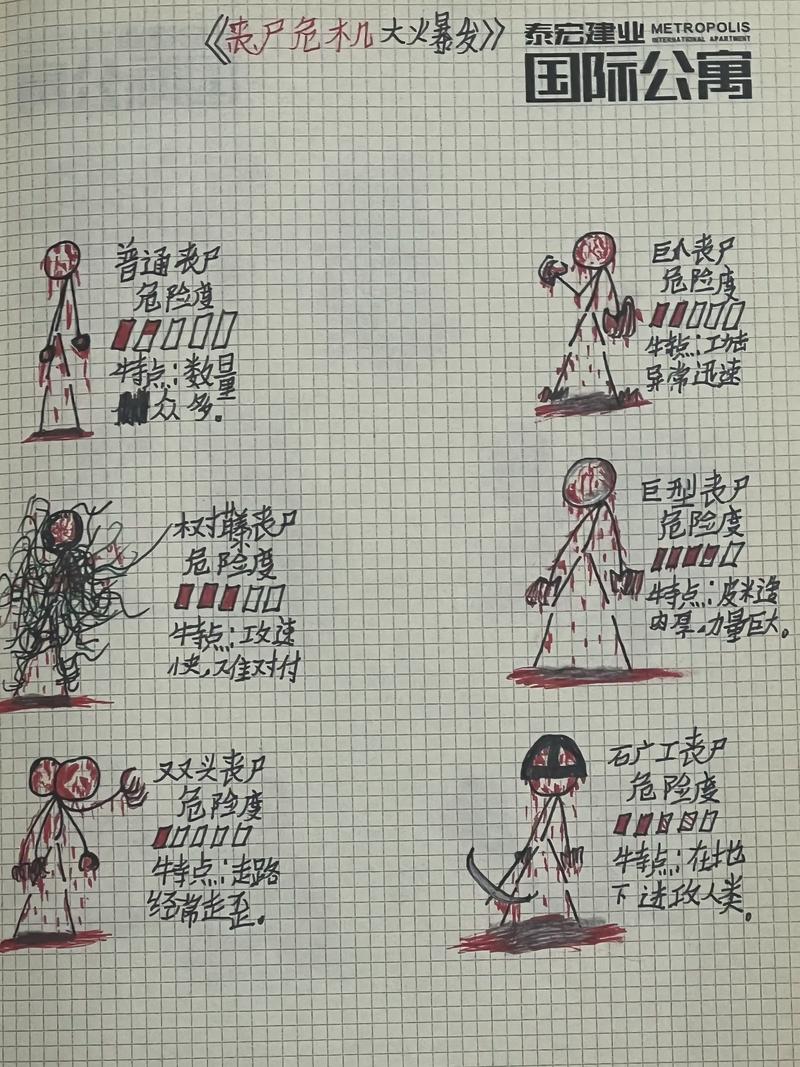 《丧尸危机大火暴发》
泰宏建业 METROPOLIS
INTERNATIONAL APARTMENT
国际公寓
普通丧尸
危险度
特点:数量
众多。
巨人丧尸
危险度
特点:攻击
异常迅速
树藤丧尸
危险度
特点:攻速
快,难对付
巨型丧尸
危险度
特点:皮糙
肉厚,力量巨大。
双头丧尸
危险度
特点:走路
经常走歪。
矿工丧尸
危险度
特点:在地
下进攻人类。